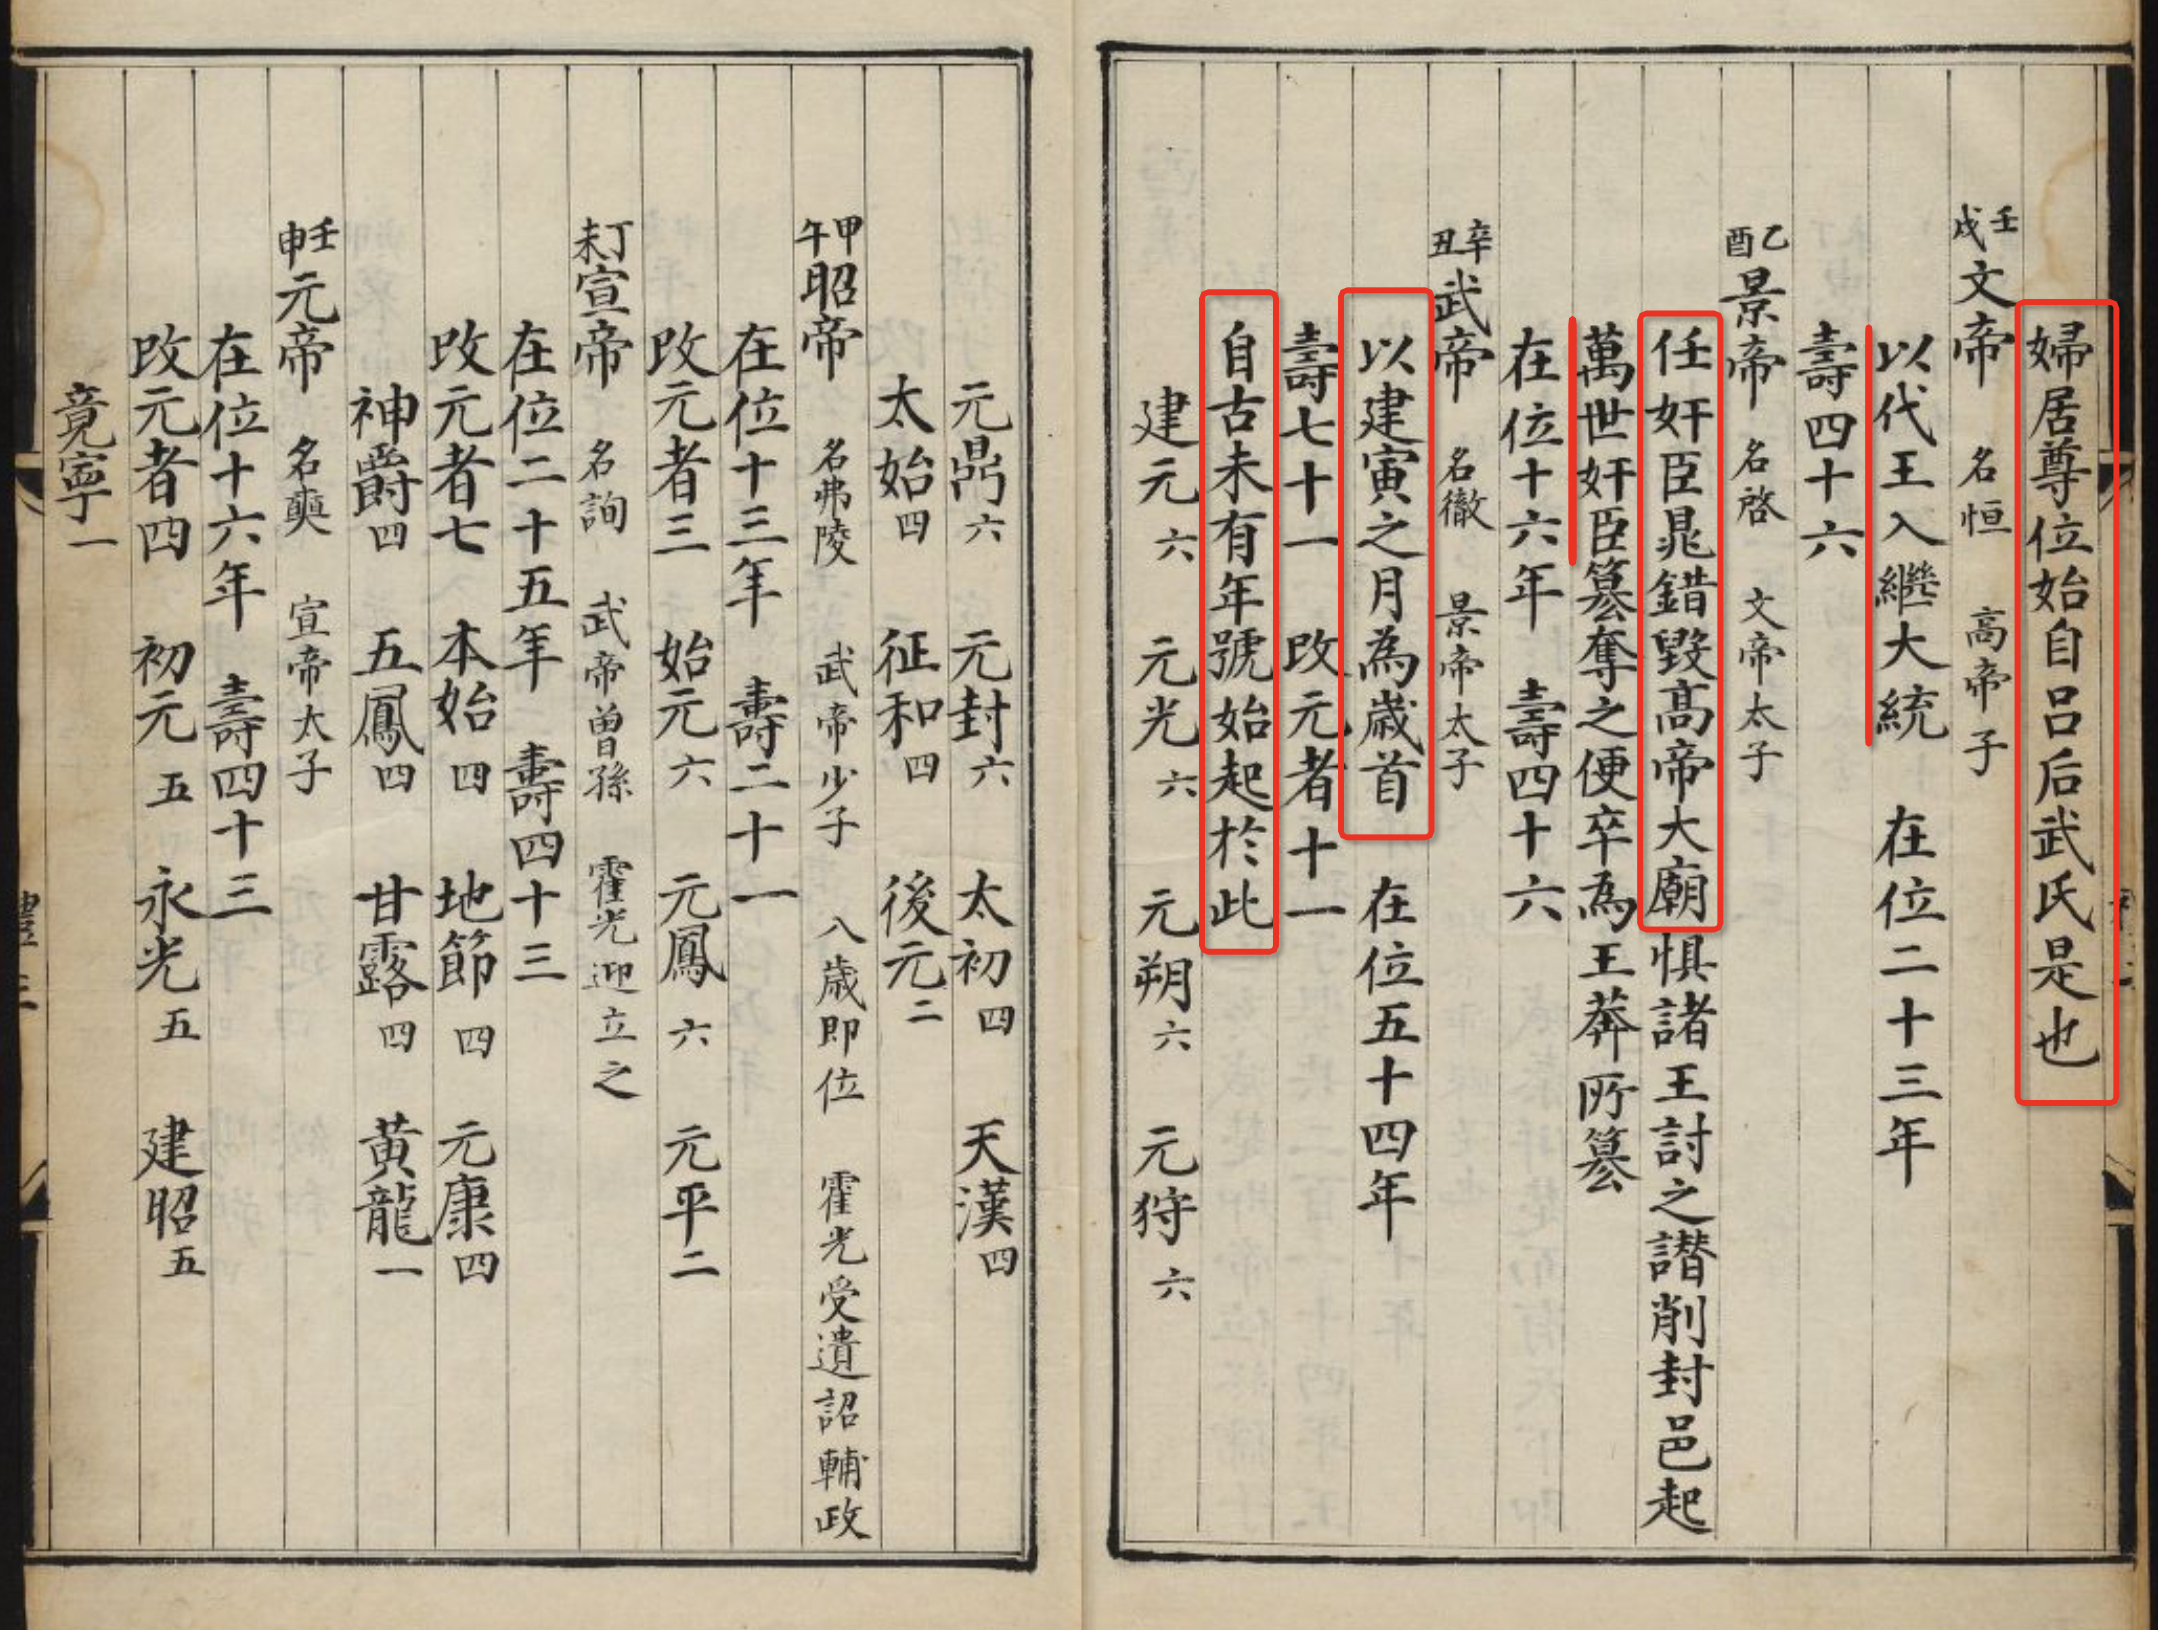 婦居尊位始自吕后武氏是也
壬戌文帝 名恒 高帝子
以代王入繼大統 在位二十三年
壽四十六
乙酉景帝 名啓 文帝太子
任奸臣晁錯毀髙帝大廟惧諸王討之譛削封邑起
萬世奸臣篡奪之便卒為王莽所篡
在位十六年 壽四十六
辛丑武帝 名徹 景帝太子
以建寅之月為歲首 在位五十四年
壽七十一 改元者十一
自古未有年號始起於此
建元六 元光六 元朔六 元狩六
元鼎六 元封六 太初四 天漢四
太始四 征和四 後元二
甲午昭帝 名弗陵 武帝少子 八歲即位 霍光受遺詔輔政
在位十三年 壽二十一
改元者三 始元六 元鳳六 元平二
丁未宣帝 名詢 武帝曾孫 霍光迎立之
在位二十五年 壽四十三
改元者七 本始四 地節四 元康四
神爵四 五鳳四 甘露四 黃龍一
壬申元帝 名奭 宣帝太子
在位十六年 壽四十三
改元者四 初元五 永光五 建昭五
竟寧一